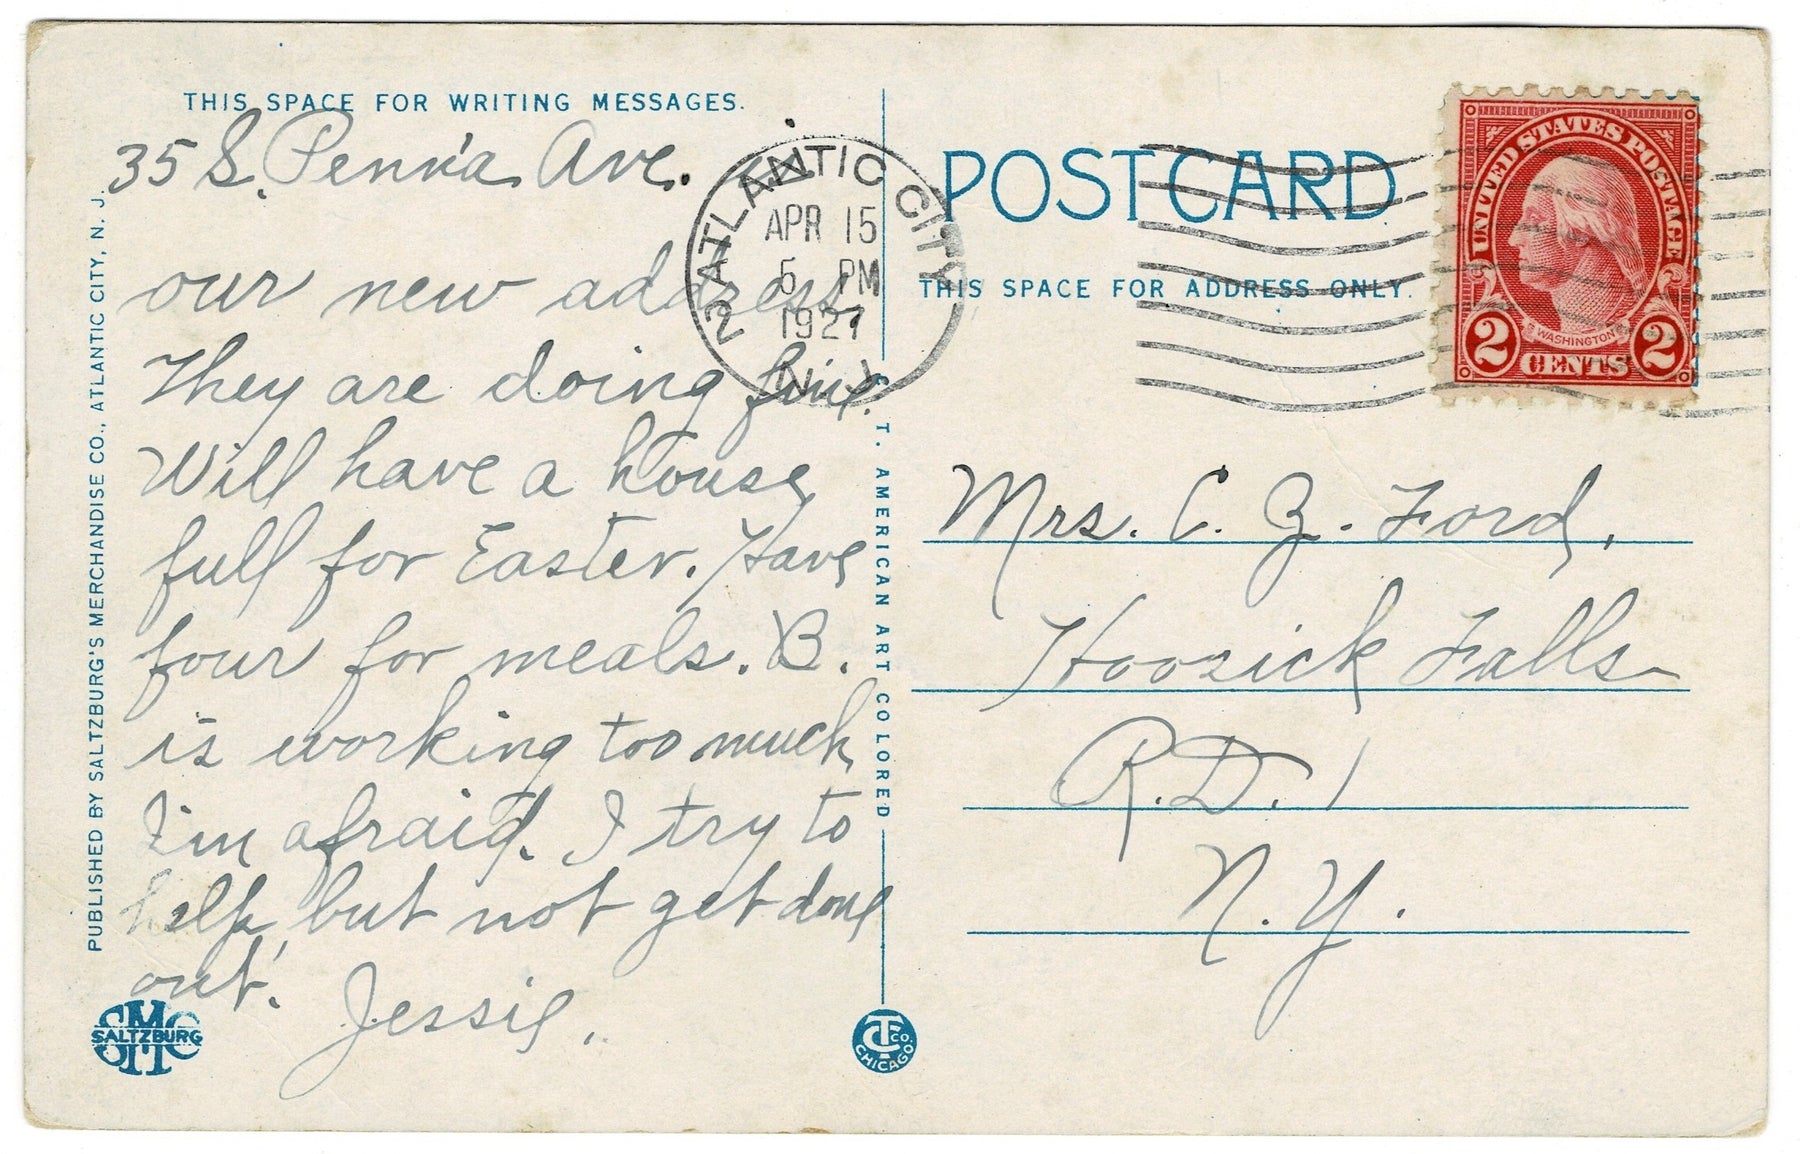 THIS SPACE FOR WRITING MESSAGES.
35 S. Penn'a Ave.
our new address
They are doing fine.
Will have a house
full for Easter. Have
four for meals. B.
is working too much
I'm afraid. I try to
help, but not get done
out'.
Jessie.
PUBLISHED BY SALTZBURG'S MERCHANDISE CO., ATLANTIC CITY, N. J.
SMC
SALTZBURG
ATLANTIC CITY
2
APR 15
5 PM
1927
N.J.
C. T. AMERICAN ART COLORED
CT CO.
CHICAGO
POST CARD
THIS SPACE FOR ADDRESS ONLY.
UNITED STATES POSTAGE
WASHINGTON
2 CENTS 2
Mrs. C. Z. Ford,
Hoosick Falls
R.D. 1
N.Y.